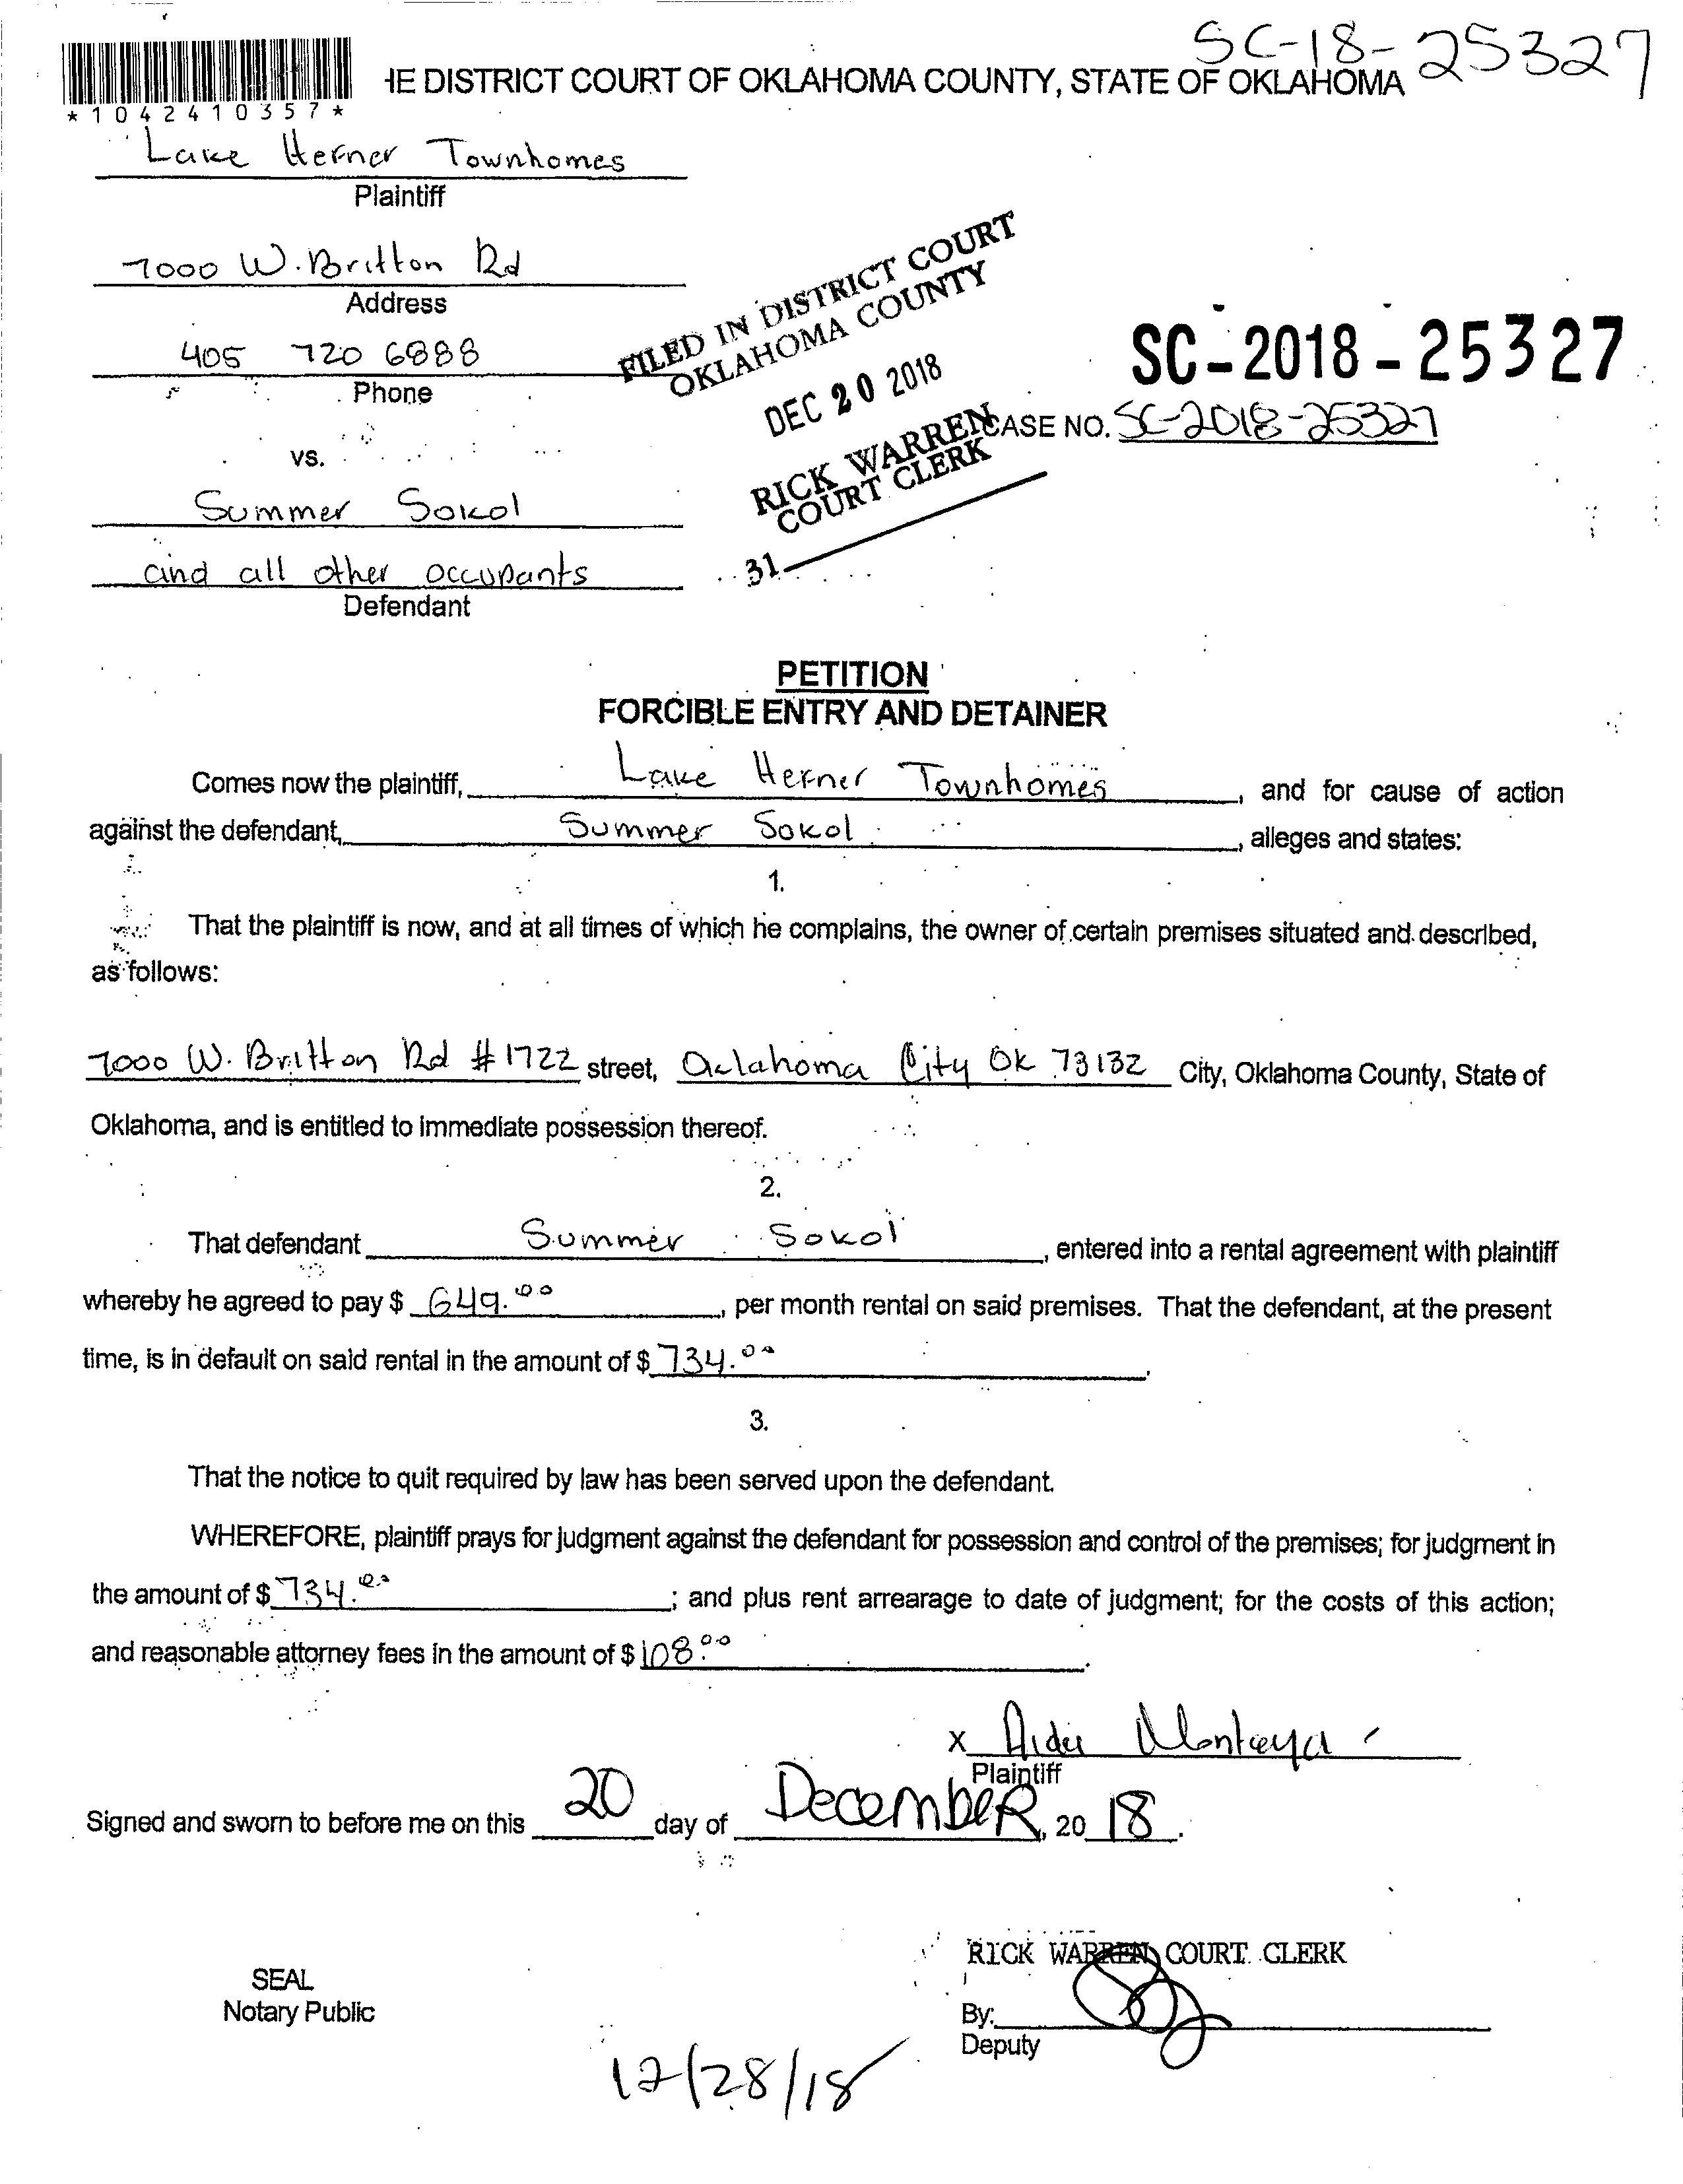 SC-18-25327
HE DISTRICT COURT OF OKLAHOMA COUNTY, STATE OF OKLAHOMA
*1042410357*
Lake Hefner Townhomes
Plaintiff
7000 W. Britton Rd
Address
405 720 6888
Phone
FILED IN DISTRICT COURT
OKLAHOMA COUNTY
DEC 20 2018
RICK WARREN
COURT CLERK
31
SC-2018-25327
CASE NO. SC-2018-25327
vs.
Summer Sokol
and all other occupants
Defendant
PETITION
FORCIBLE ENTRY AND DETAINER
Comes now the plaintiff, Lake Hefner Townhomes, and for cause of action
against the defendant, Summer Sokol, alleges and states:
1.
That the plaintiff is now, and at all times of which he complains, the owner of certain premises situated and described,
as follows:
7000 W. Britton Rd #1722 street, Oklahoma City OK 73132 City, Oklahoma County, State of
Oklahoma, and is entitled to immediate possession thereof.
2.
That defendant Summer Sokol, entered into a rental agreement with plaintiff
whereby he agreed to pay $ 649.00, per month rental on said premises. That the defendant, at the present
time, is in default on said rental in the amount of $ 734.00.
3.
That the notice to quit required by law has been served upon the defendant.
WHEREFORE, plaintiff prays for judgment against the defendant for possession and control of the premises; for judgment in
the amount of $ 734.00; and plus rent arrearage to date of judgment; for the costs of this action;
and reasonable attorney fees in the amount of $ 108.00.
x Aida Montoya
Plaintiff
Signed and sworn to before me on this 20 day of DecembeR, 20 18.
RICK WARREN COURT CLERK
SEAL
Notary Public
By:
Deputy
12/28/18